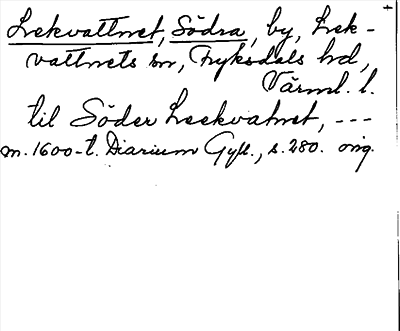 Lekvattnet, Södra, by, Lek-
vattnets sn, Fryksdals hd,
Värml. l.
til Söder Leekvatnet, ---
m. 1600-t. Diarium Gyll., s. 280. orig.